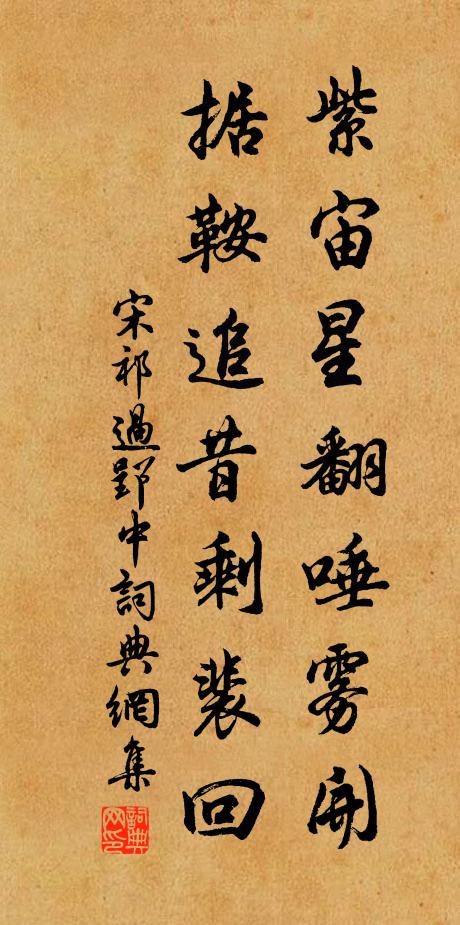 紫宙星翻唾雾開
据鞍追昔剩裴回
宋祁過郢中詞典網集
詞典网印